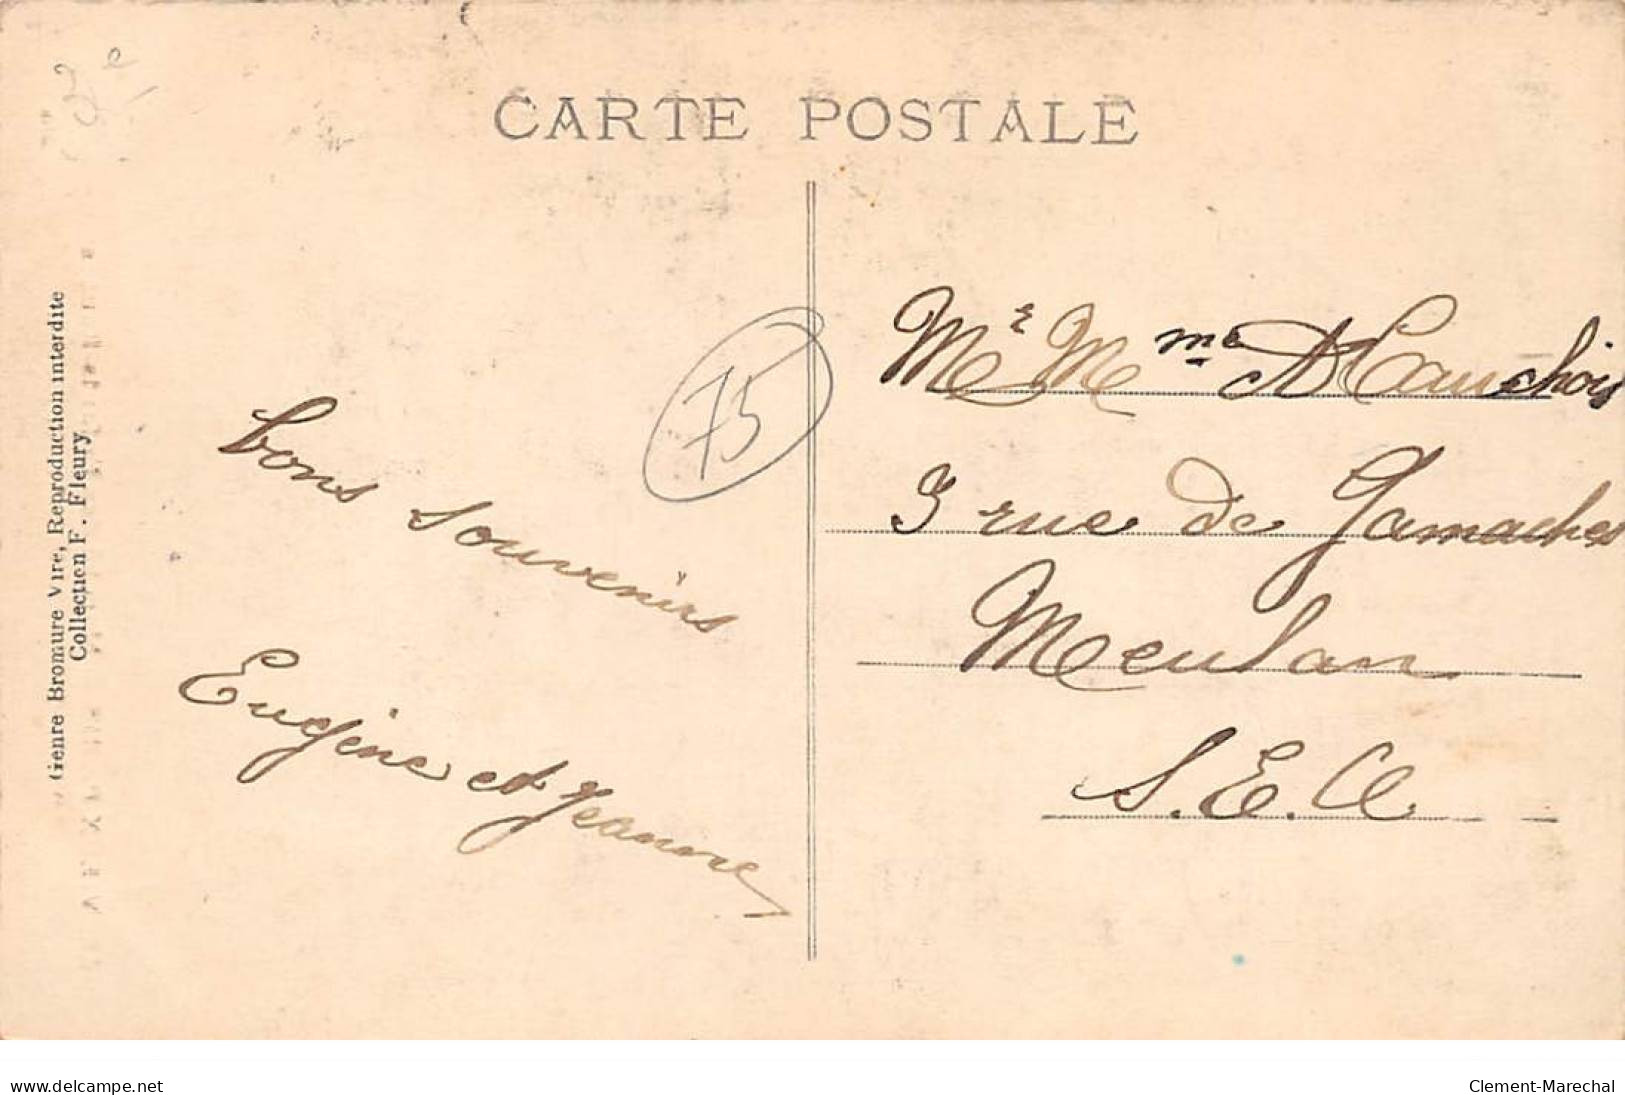 CARTE POSTALE
Genre Bromure Vire, Reproduction interdite
Collection F. Fleury
75
bons souvenirs
Eugène et Jeanne
Mr Mme A Cauchois
3 rue de Gamaches
Meulan
S.E.O
delcampe.net
Clement-Marechal